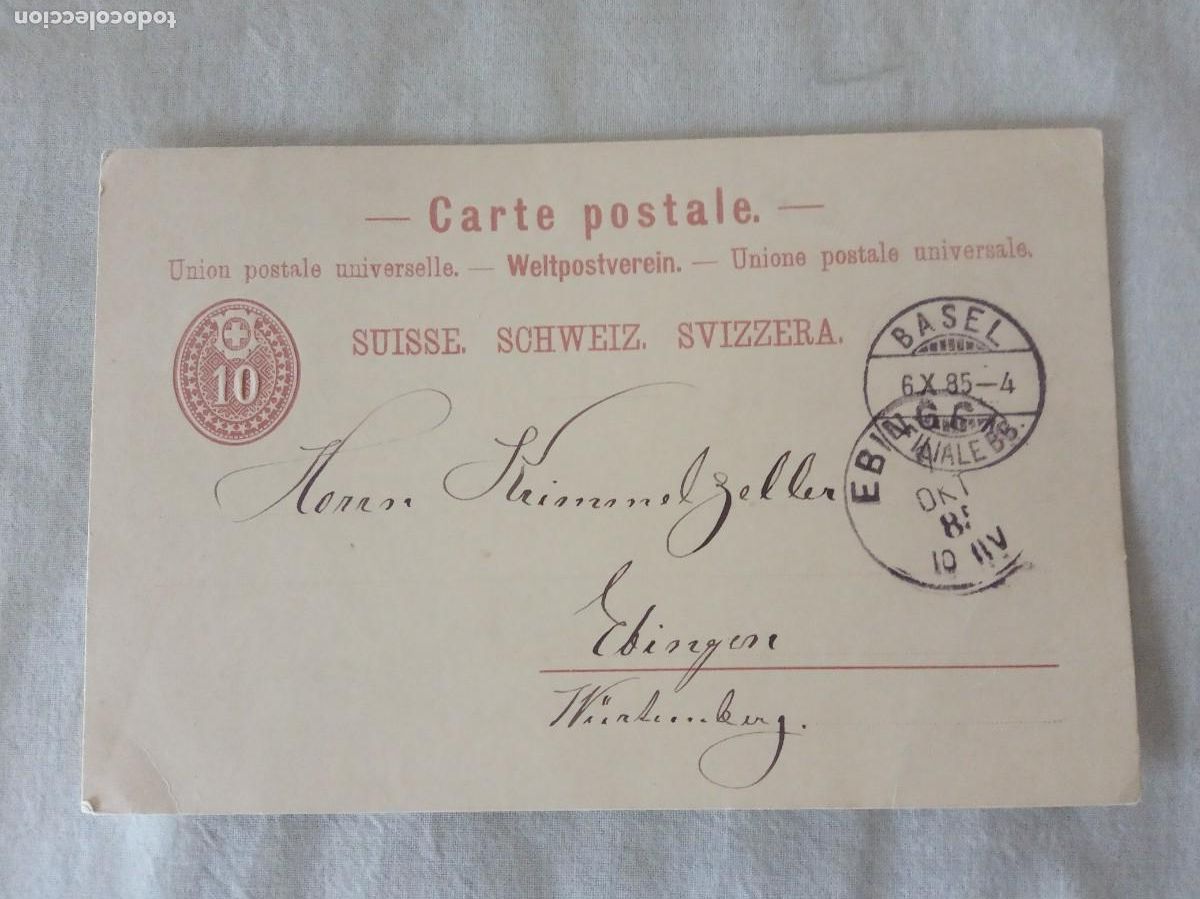 todocoleccion
— Carte postale. —
Union postale universelle. — Weltpostverein. — Unione postale universale.
10
SUISSE. SCHWEIZ. SVIZZERA.
BASEL
6.X.85—4
EBINGEN
OKT
10
Herrn Krimmel Zeller
Ebingen
Würtemberg.